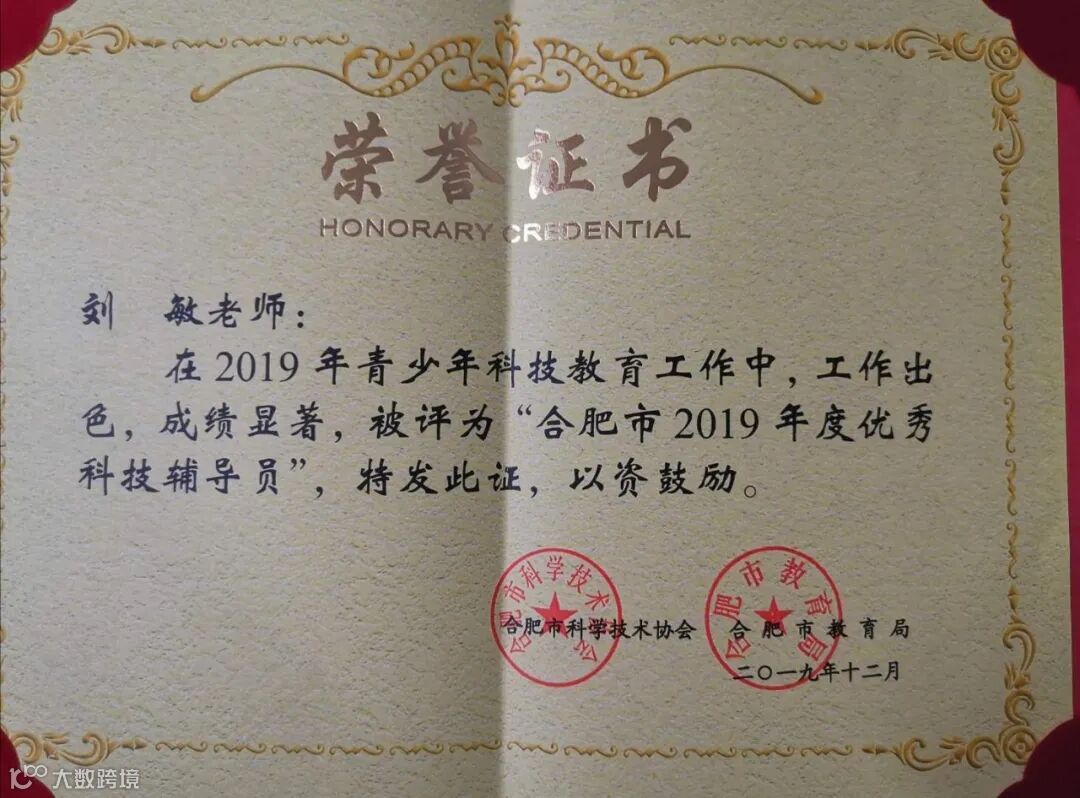 荣誉证书
HONORARY CREDENTIAL
刘 敏老师：
在2019年青少年科技教育工作中，工作出
色，成绩显著，被评为“合肥市2019年度优秀
科技辅导员”，特发此证，以资鼓励。
合肥市科学技术协会
合肥市教育局
合肥市科学技术协会 合肥市教育局
二〇一九年十二月
大数跨境